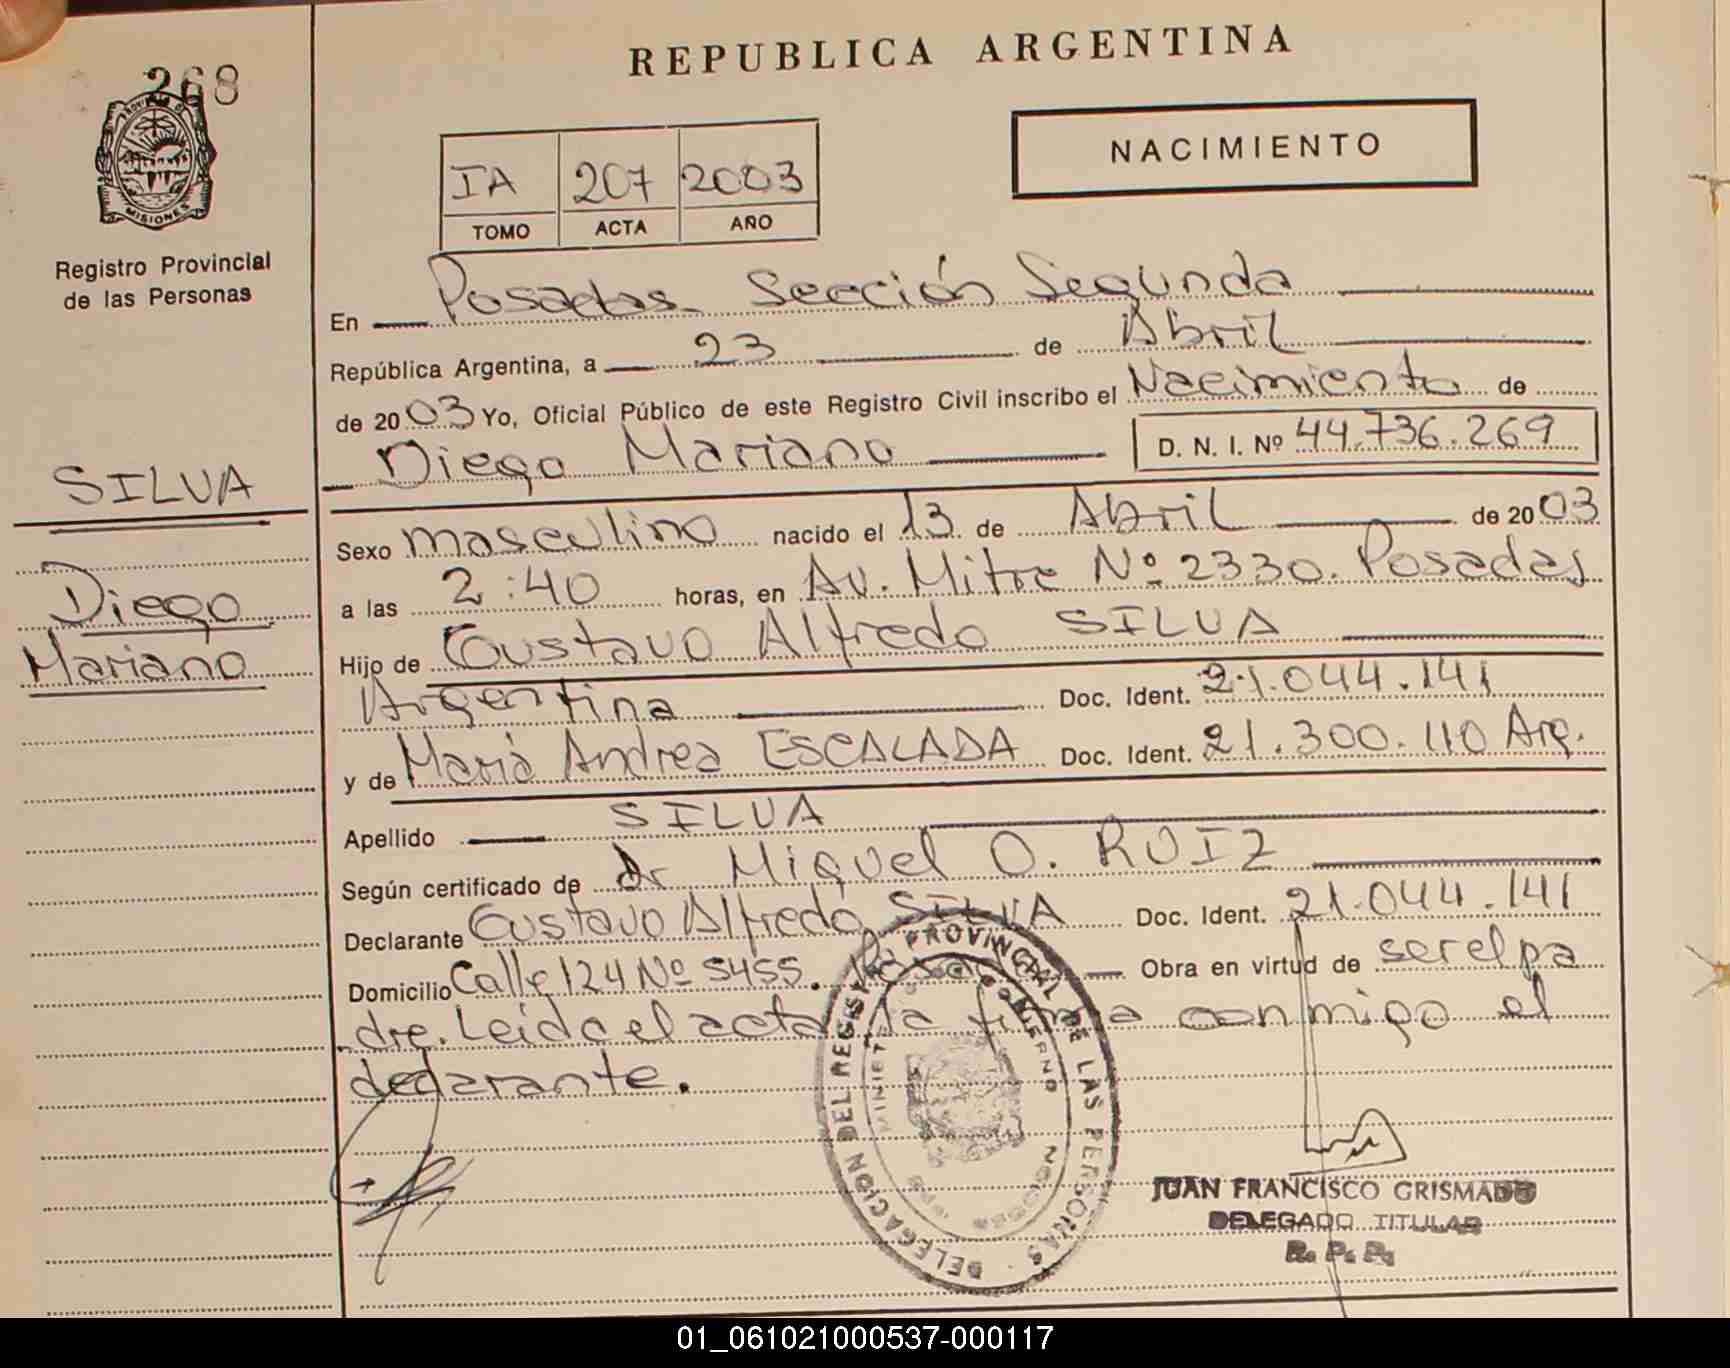 268
PROVINCIA DE
MISIONES
Registro Provincial
de las Personas
REPUBLICA ARGENTINA
NACIMIENTO
IA 207 2003
TOMO ACTA AÑO
En Posadas Sección Segunda
República Argentina, a 23 de Abril
de 2003 Yo, Oficial Público de este Registro Civil inscribo el Nacimiento de
Diego Mariano D. N. I. Nº 44.736.269
SILVA
Diego
Mariano
Sexo masculino nacido el 13 de Abril de 2003
a las 2:40 horas, en Av. Mitre Nº 2330. Posadas
Hijo de Gustavo Alfredo SILVA
Argentina Doc. Ident. 21.044.141
y de María Andrea ESCALADA Doc. Ident. 21.300.110 Arg.
Apellido SILVA
Según certificado de Dr Miguel O. RUIZ
Declarante Gustavo Alfredo SILVA Doc. Ident. 21.044.141
Domicilio Calle 124 Nº 5455. Obra en virtud de ser el pa
dre. Leída el acta la firma conmigo el
declarante.
DELEGACION DEL REGISTRO PROVINCIAL DE LAS PERSONAS
GOBIERNO
JUAN FRANCISCO GRISMADO
DELEGADO TITULAR
R. P. P.
01_061021000537-000117